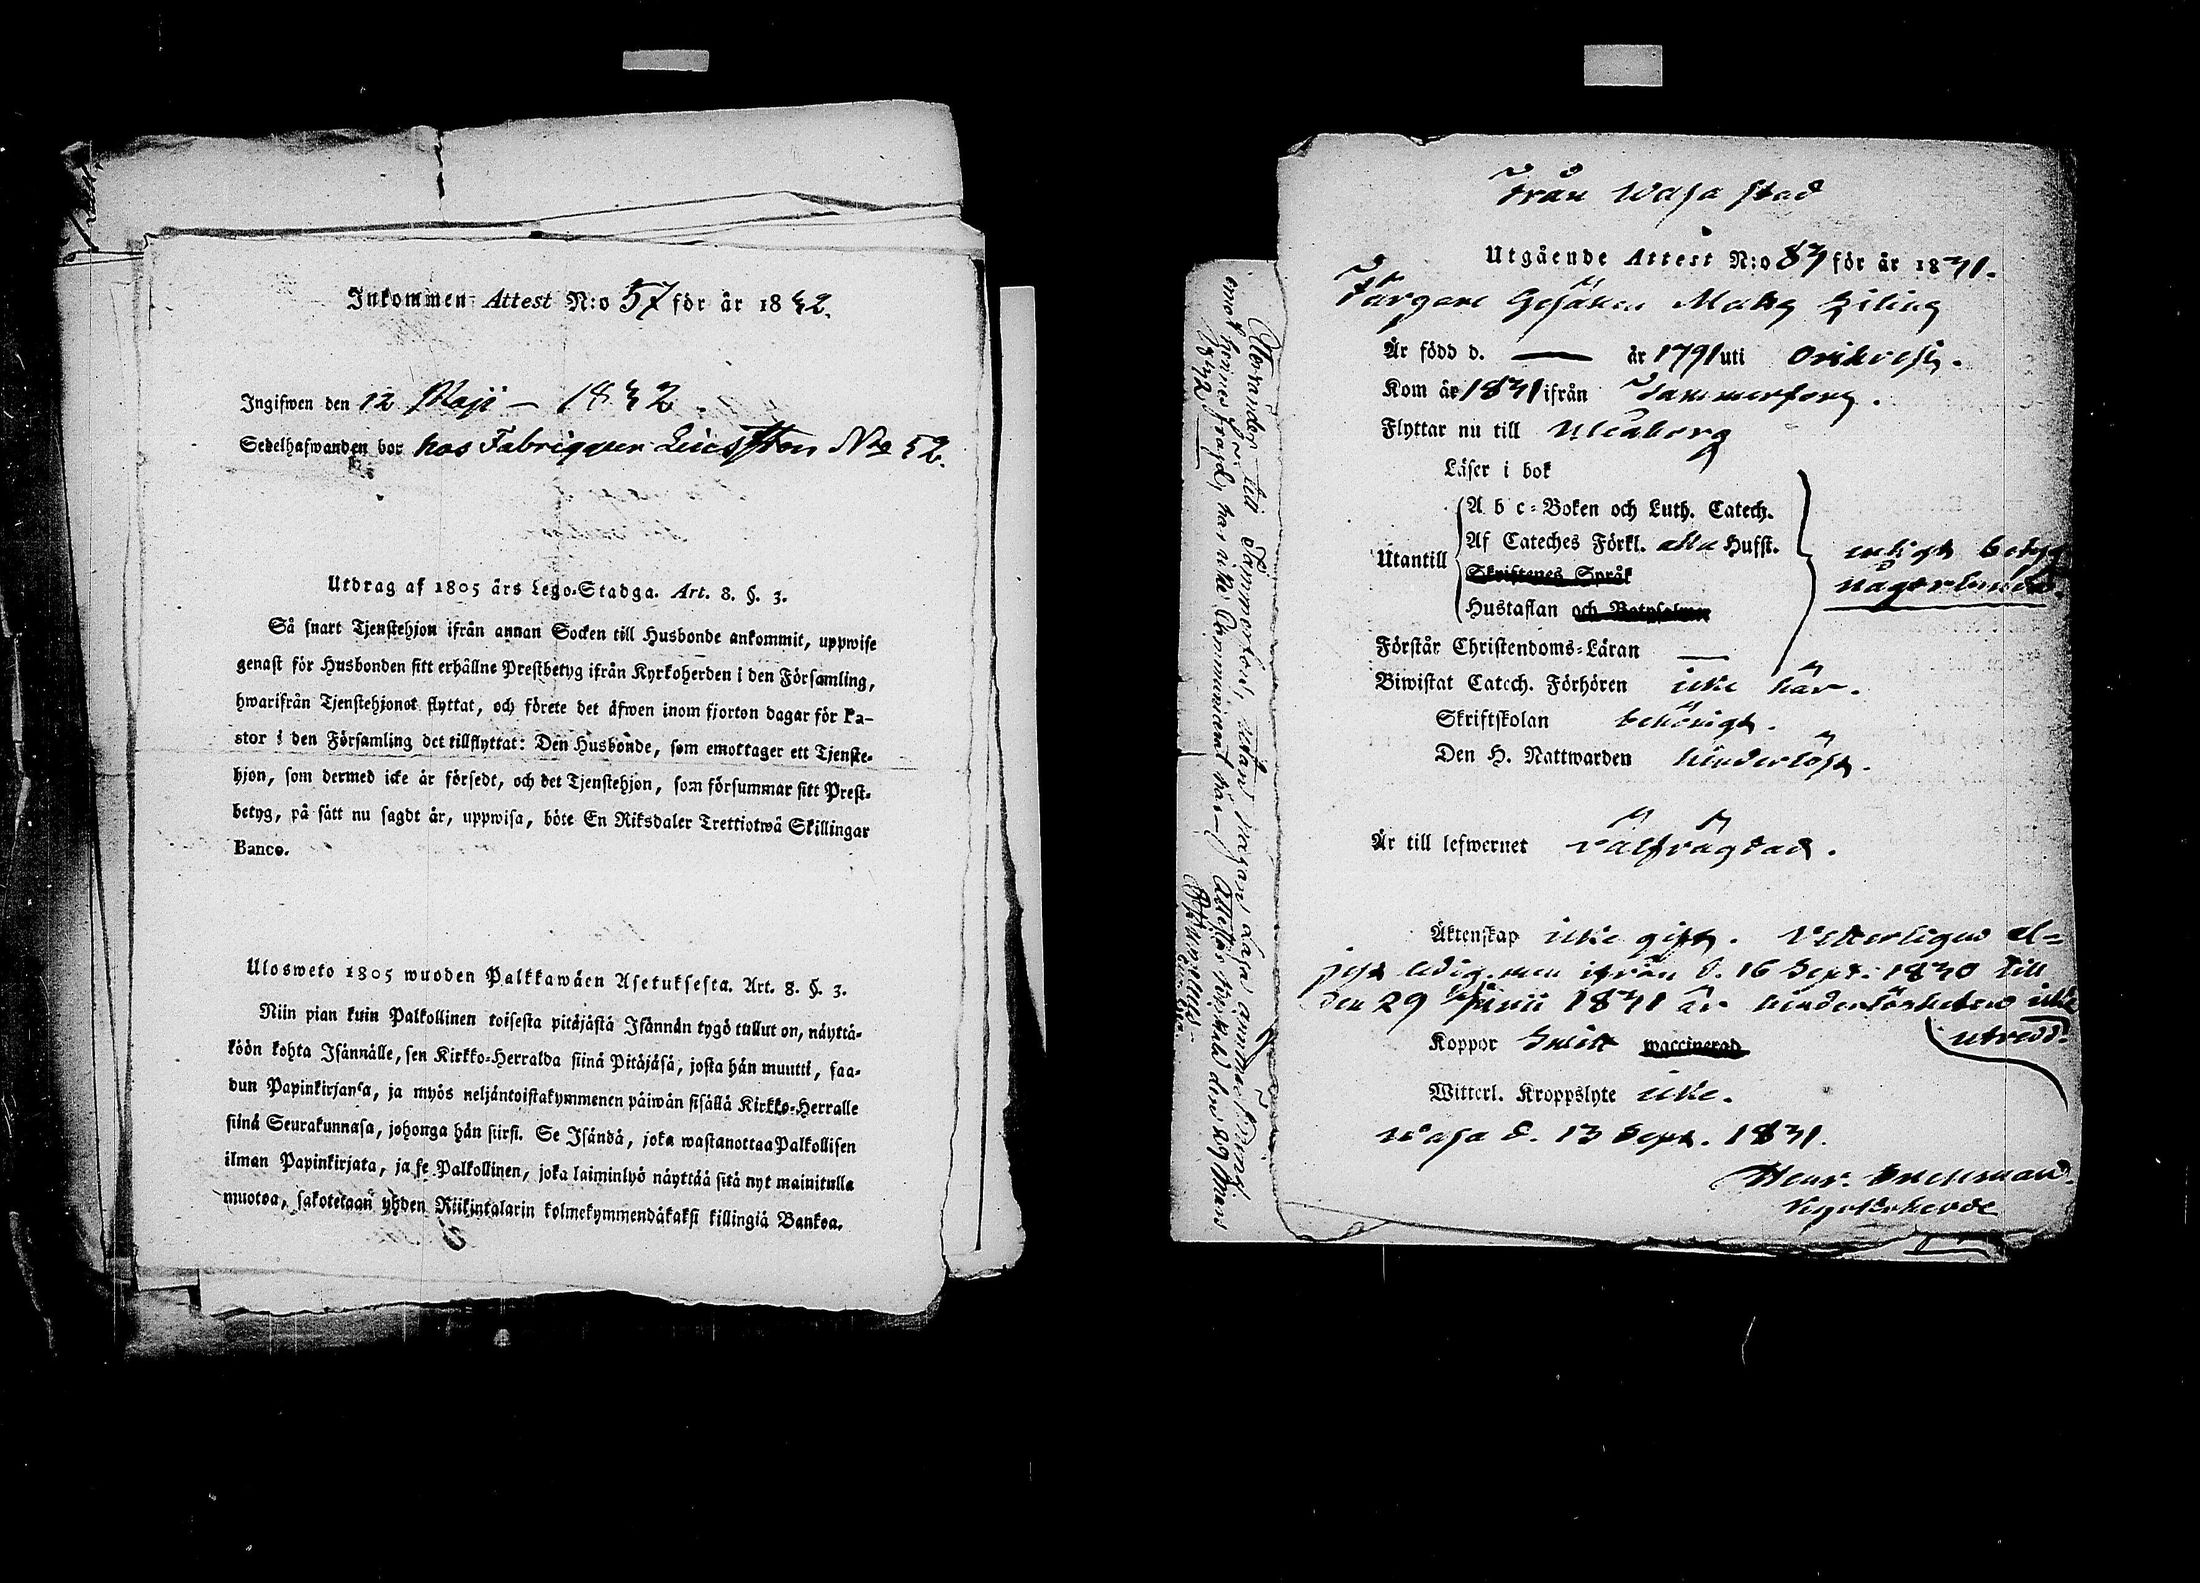 Inkommen Attest N:o 57 för år 1832.
Ingifwen den 12 Maji – 1832
Sedelhafwanden bor hos Fabriqueur N:o 52.
Utdrag af 1805 års Lego-Stadga. Art. 8. §. 3.
Så snart Tjenstehjon ifrån annan Socken till Husbonde ankommit, uppwise
genast för Husbonden sitt erhållne Prestbetyg ifrån Kyrkoherden i den Församling,
hwarifrån Tjenstehjonet flyttat, och förete det äfwen inom fjorton dagar för Pa-
stor i den Församling det tillflyttat: Den Husbonde, som emottager ett Tjenste-
hjon, som dermed icke är försedt, och det Tjenstehjon, som försummar sitt Prest-
betyg, på sätt nu sagdt är, uppwisa, böte En Riksdaler Trettiotwå Skillingar
Banco.
Ulosweto 1805 wuoden Palkkawäen Asetuksesta. Art. 8. §. 3.
Niin pian kuin Palkollinen toisesta pitäjästä Isännän tygö tullut on, näyttä-
köön kohta Isännälle, sen Kirkko-Herralda siinä Pitäjäsä, josta hän muutti, saa-
dun Papinkirjansa, ja myös neljäntoistakymmenen päiwän sisällä Kirkko-Herralle
siinä Seurakunnasa, johonga hän siirsi. Se Isändä, joka wastanottaa Palkollisen
ilman Papinkirjata, ja se Palkollinen, joka laiminlyö näyttää sitä nyt mainitulla
muotoa, sakotetaan yhden Riikintalarin kolmekymmendäkaksi killingiä Bankoa.
Från Wasa stad
Utgående Attest N:o 87 för år 1831.
Färgare Gesällen Mats
Är född d. — år 1791 uti Orihvesi.
Kom år 1831 ifrån Tammerfors.
Flyttar nu till Uleåborg
Läser i bok
A b c-Boken och Luth. Catech.
Utantill Af Cateches Förkl. alla Hufst.
Skriftenes Språk
Hustaflan och Botpsalmer
enligt betyg
någorlunda.
Förstår Christendoms-Läran —
Biwistat Catech. Förhören icke här.
Skriftskolan behörigt.
Den H. Nattwarden hinderlöst.
Är till lefwernet välfrägdad.
Äktenskap icke gift. Vetterligen el-
jest ledig, men ifrån d. 16 Sept. 1830 till
den 29 Junii 1831 är hinderlösheten icke
utredd.
Koppor haft waccinerad
Witterl. Kroppslyte icke.
Wasa d. 13 Sept. 1831.
Henr.
Kyrkoherde